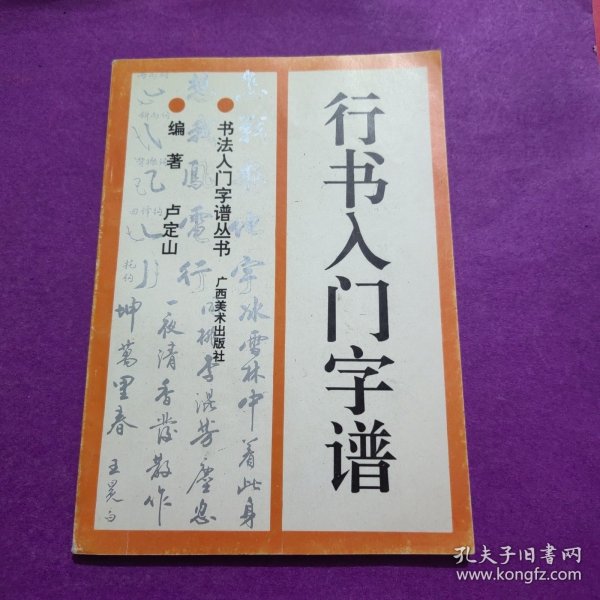 行书入门字谱
书法入门字谱丛书
广西美术出版社
编著 卢定山
字冰雪林中着此身
鳳電行
同桃李混芳塵忽
一夜清香發散作
坤萬里春
王冕句
孔夫子旧书网
www.kongfz.com